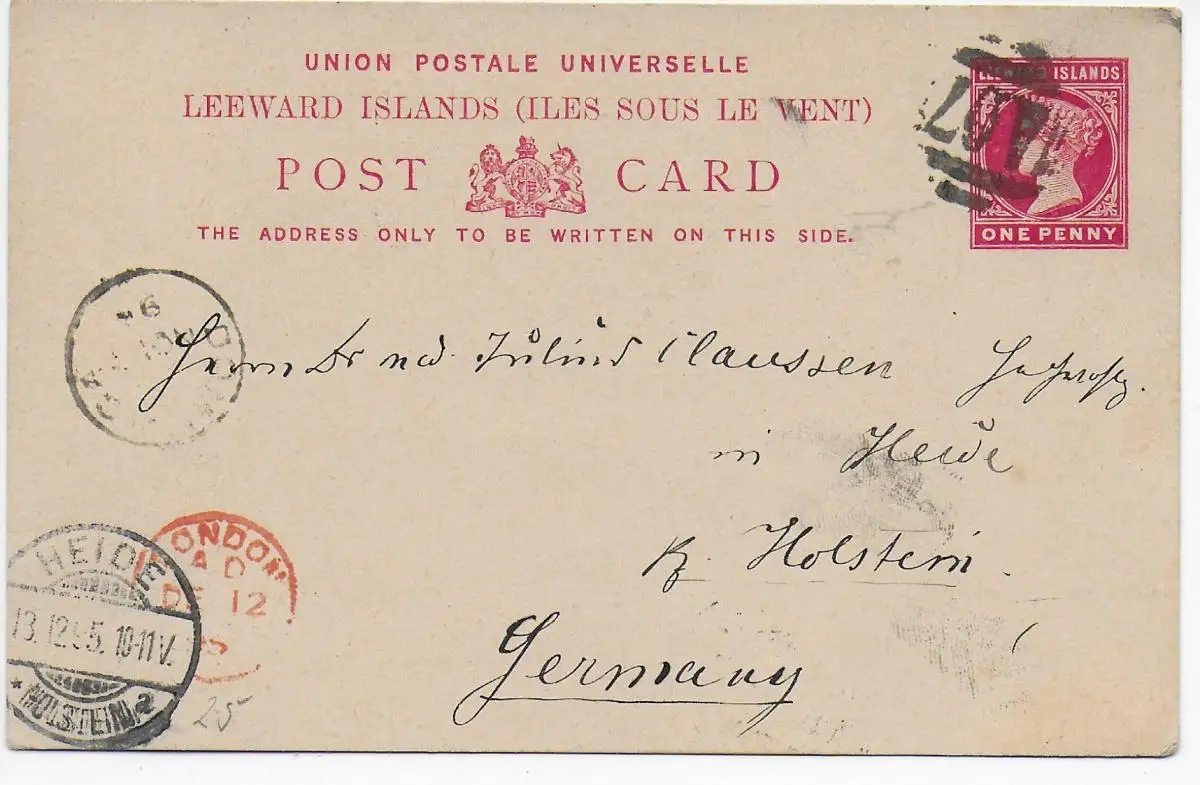 UNION POSTALE UNIVERSELLE
LEEWARD ISLANDS (ILES SOUS LE VENT)
POST CARD
THE ADDRESS ONLY TO BE WRITTEN ON THIS SIDE.
LEEWARD ISLANDS
ONE PENNY
A07
94
Herrn Dr med. Julius Claussen
in Heide
Holstein.
Germany
LONDON
AD
DE 12
HEIDE
13.12.95.10-11V.
* (HOLSTEIN) 2
25